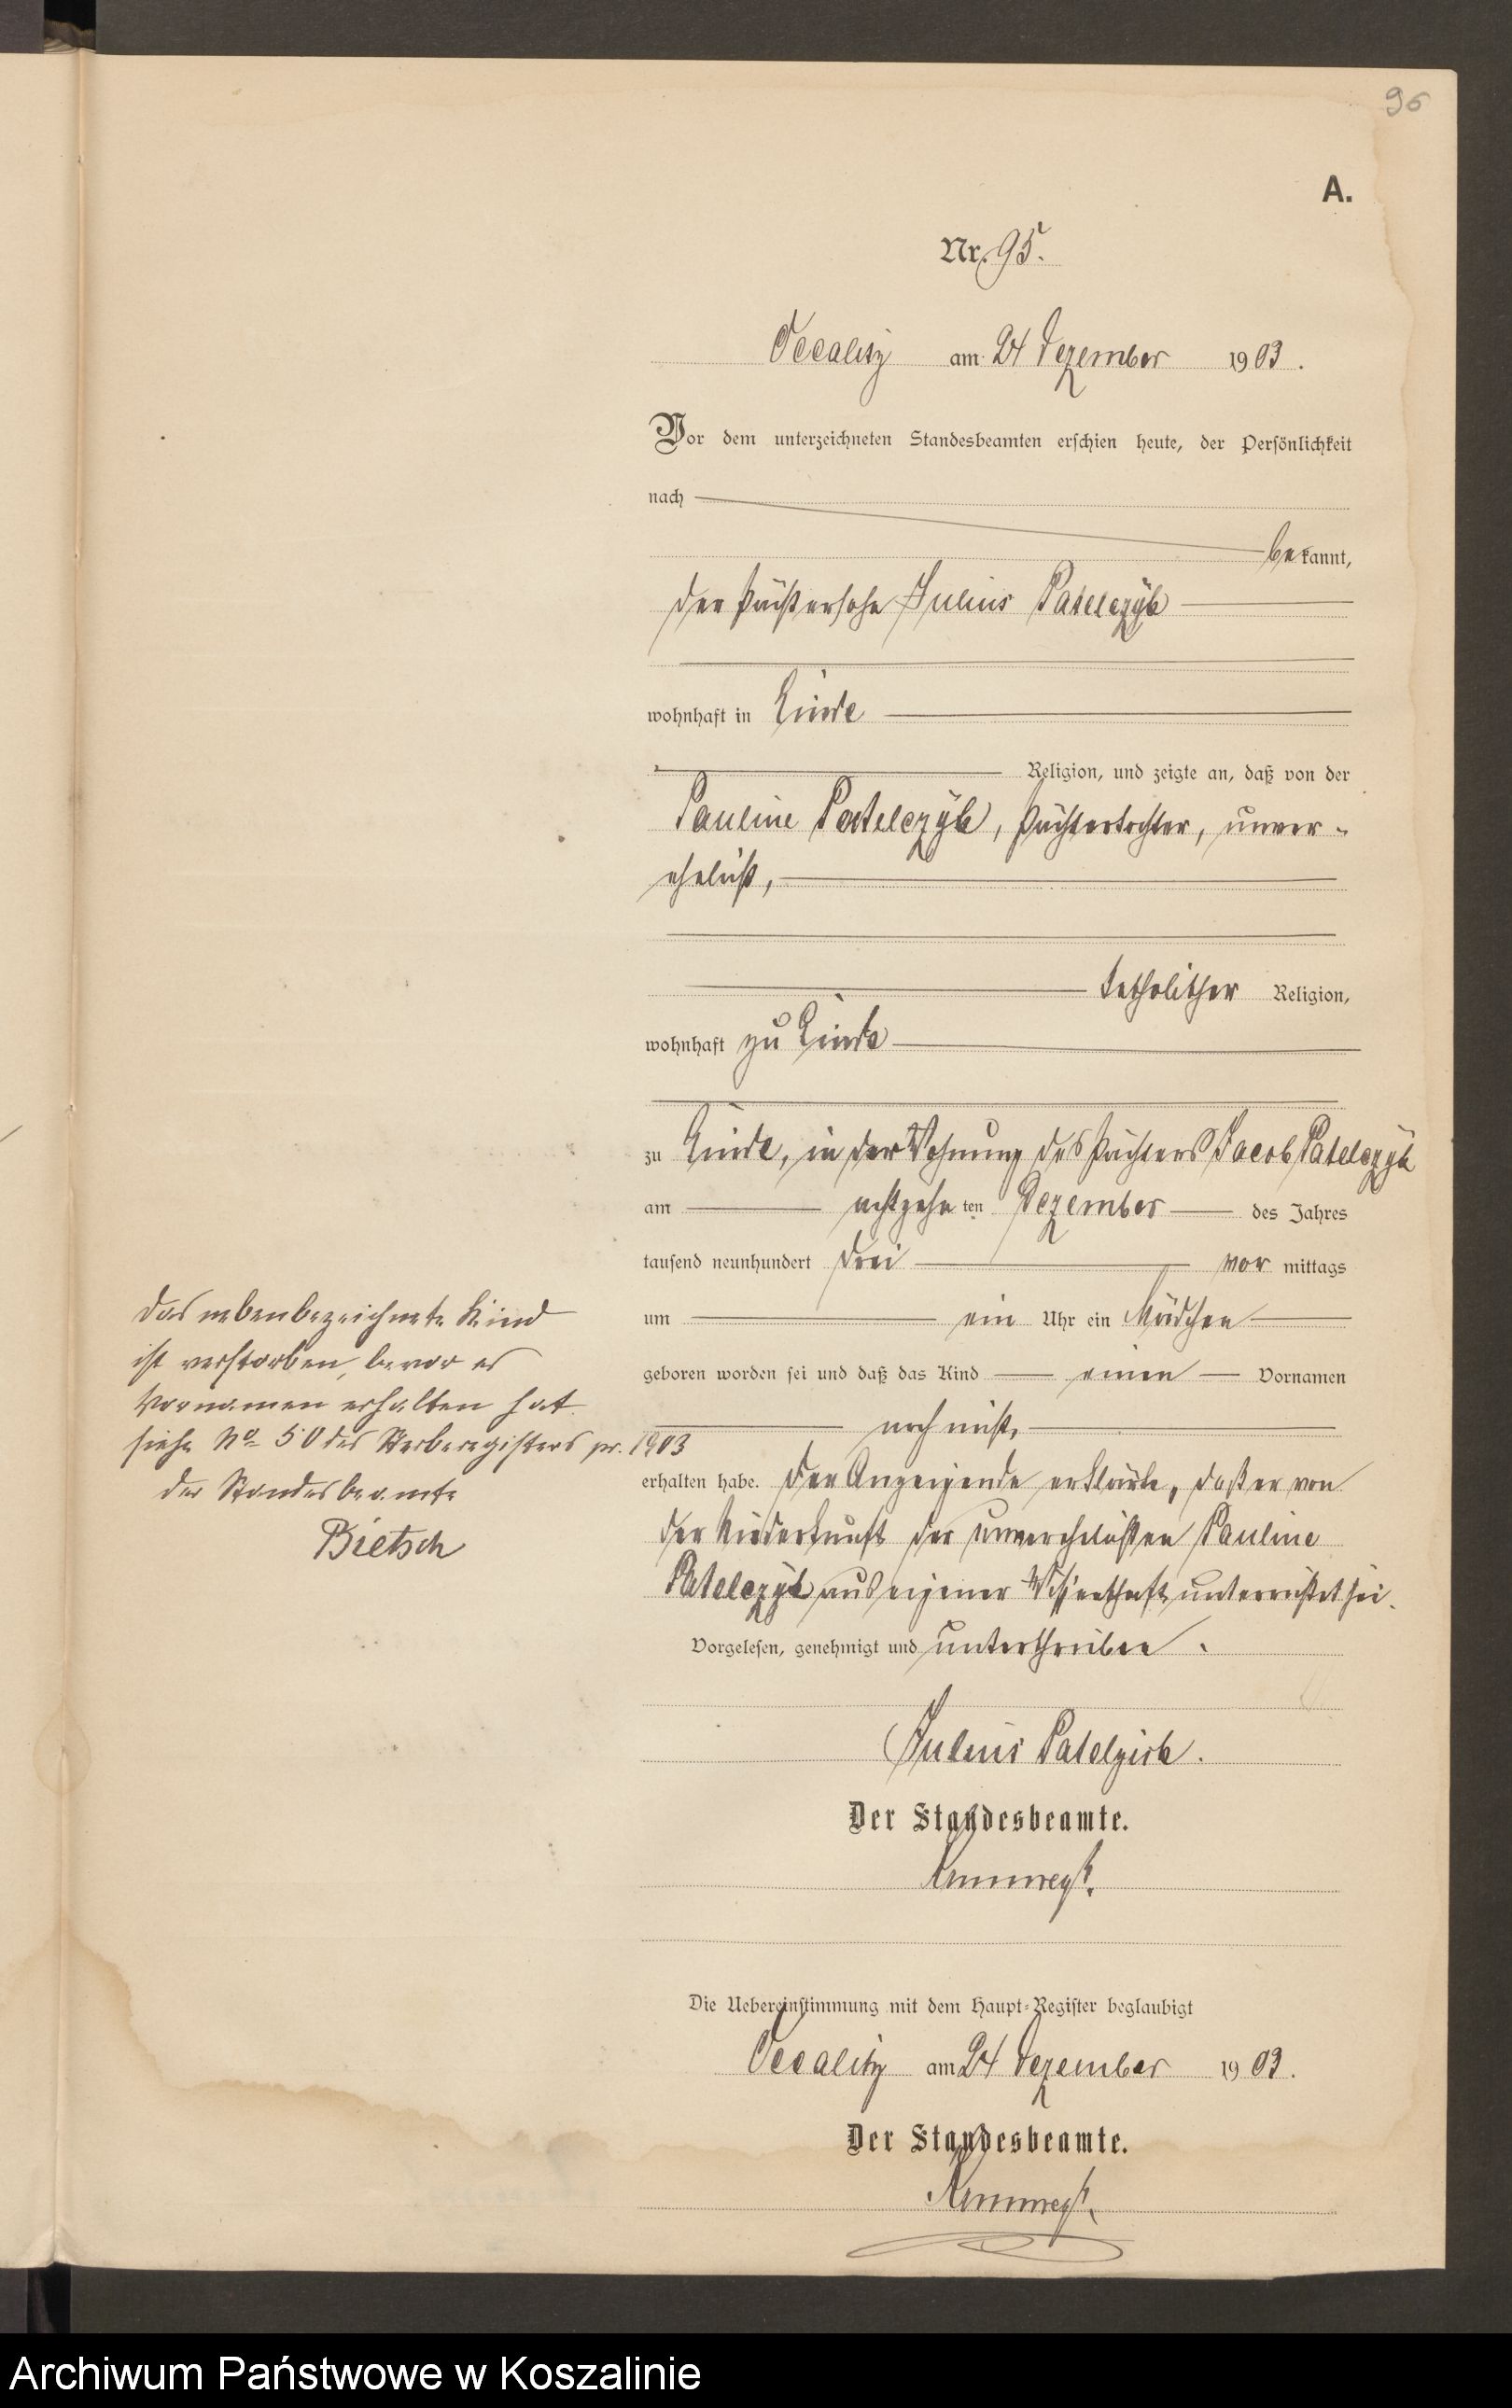 96
A.
Nr. 95.
Occalitz am 24 Dezember 1903.
Vor dem unterzeichneten Standesbeamten erschien heute, der Persönlichkeit
nach
bekannt,
der Pächtersohn Julius Patelczÿk
wohnhaft in Linde
Religion, und zeigte an, daß von der
Pauline Patelczÿk, Pächtertochter, unver-
ehelicht,
katholischer Religion,
wohnhaft zu Linde
zu Linde, in der Wohnung des Pächters Jacob Patelczÿk
am achtzehnten Dezember des Jahres
tausend neunhundert drei vormittags
um ein Uhr ein Mädchen
geboren worden sei und daß das Kind einen Vornamen
noch nicht
erhalten habe. Der Anzeigende erklärte, daß er von
der Niederkunft der unverehelichten Pauline
Patelczÿk aus eigener Wissenschaft unterrichtet sei.
Vorgelesen, genehmigt und unterschrieben.
Julius Patelzick.
Der Standesbeamte.
Die Uebereinstimmung mit dem Haupt-Register beglaubigt
Occalitz am 24 Dezember 1903.
Der Standesbeamte.
Das nebenbezeichnete Kind
ist verstorben, bevor es
Vornamen erhalten hat.
siehe No 50 des Sterberegisters pr. 1903
Der Standesbeamte
Bietsch
Archiwum Państwowe w Koszalinie